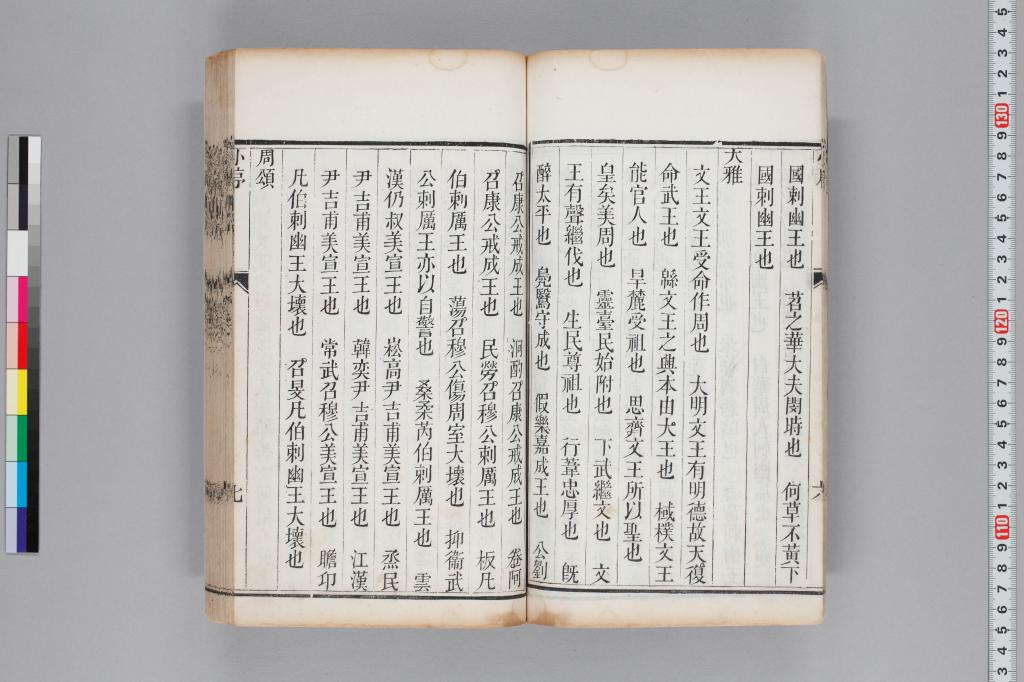 國刺幽王也　苕之華大夫閔時也　何草不黃下
國刺幽王也
大雅
文王文王受命作周也　大明文王有明德故天復
命武王也　緜文王之興本由大王也　棫樸文王
能官人也　旱麓受祖也　思齊文王所以聖也
皇矣美周也　靈臺民始附也　下武繼文也　文
王有聲繼伐也　生民尊祖也　行葦忠厚也　旣
醉太平也　鳧鷖守成也　假樂嘉成王也　公劉
召康公戒成王也　泂酌召康公戒成王也　卷阿
召康公戒成王也　民勞召穆公刺厲王也　板凡
伯刺厲王也　蕩召穆公傷周室大壞也　抑衞武
公刺厲王亦以自警也　桑柔芮伯刺厲王也　雲
漢仍叔美宣王也　崧高尹吉甫美宣王也　烝民
尹吉甫美宣王也　韓奕尹吉甫美宣王也　江漢
尹吉甫美宣王也　常武召穆公美宣王也　瞻卬
凡伯刺幽王大壞也　召旻凡伯刺幽王大壞也
周頌
七
六
5
4
3
2
1
130
9
8
7
6
5
4
3
2
1
120
9
8
7
6
5
4
3
2
1
110
9
8
7
6
5
4
3